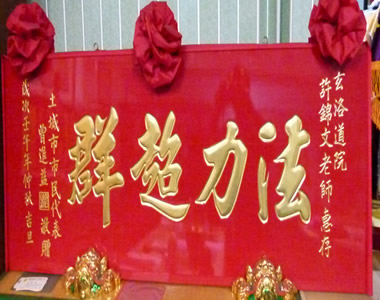 玄洛道院
許錦文老師惠存
法力超群
土城市市民代表
曾進益 敬贈
歲次壬午年仲秋吉旦